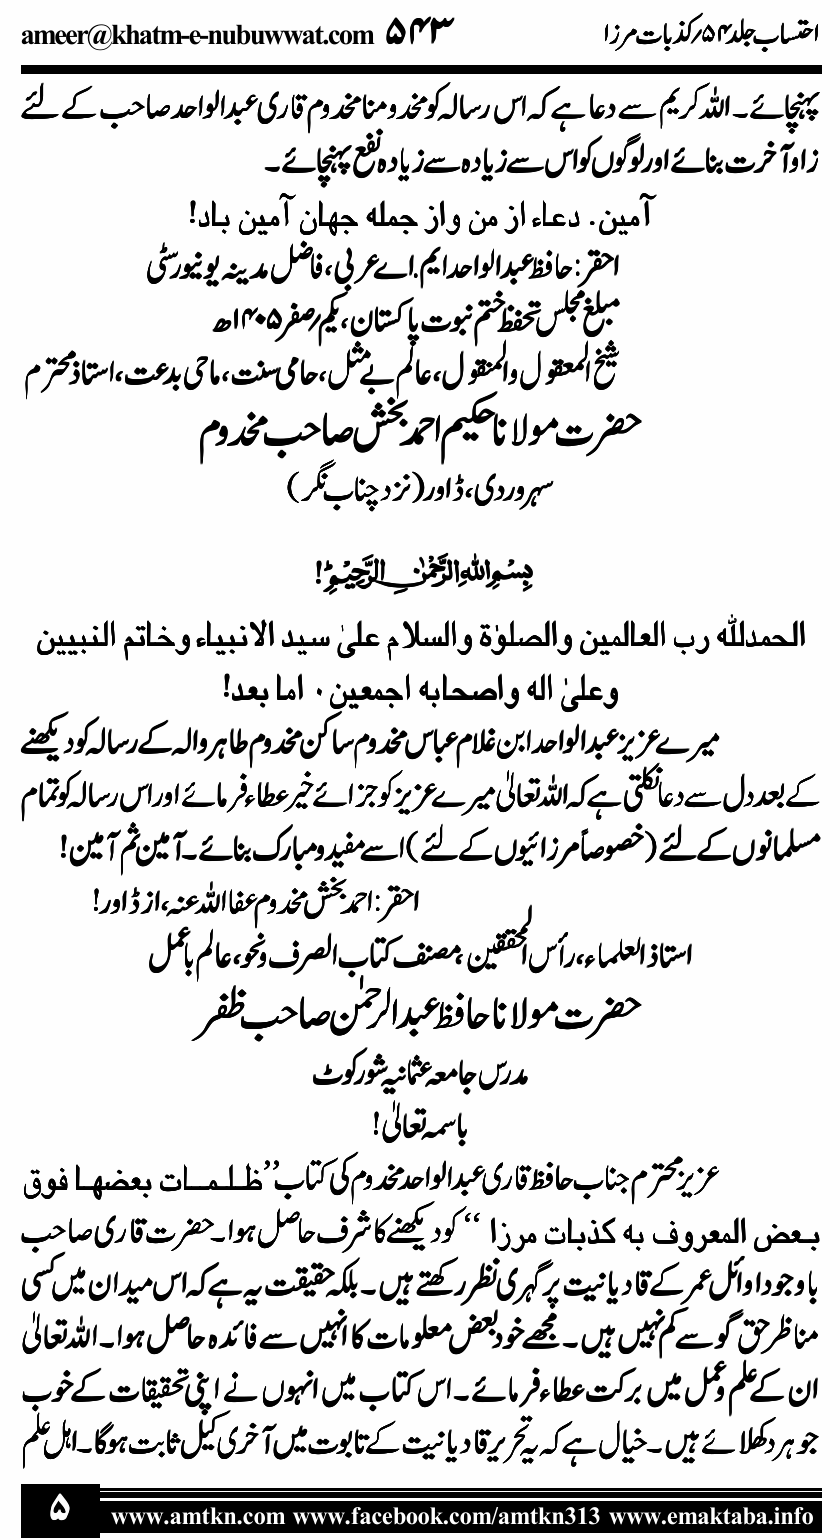 احتساب جلد ۵۴؍ کذبات مرزا ۵۴۳ ameer@khatm-e-nubuwwat.com
پہنچائے۔ اللہ کریم سے دعا ہے کہ اس رسالہ کو مخدومنا مخدوم قاری عبدالواحد صاحب کے لئے
زاد آخرت بنائے اور لوگوں کو اس سے زیادہ سے زیادہ نفع پہنچائے۔
آمین. دعاء از من واز جملہ جہان آمین باد!
احقر: حافظ عبدالواحد ایم.اے عربی، فاضل مدینہ یونیورسٹی
مبلغ مجلس تحفظ ختم نبوت پاکستان، یکم؍صفر ۱۴۰۵ھ
شیخ المعقول والمنقول، عالم بے مثل، حامی سنت، ماحی بدعت، استاذ محترم
حضرت مولانا حکیم احمد بخش صاحب مخدوم
سہروردی، ڈاور (نزد چناب نگر)
بِسْمِ اللہِ الرَّحْمٰنِ الرَّحِیْمِ!
الحمدللہ رب العالمین والصلوٰۃ والسلام علیٰ سید الانبیاء وخاتم النبیین
وعلیٰ الہ واصحابہ اجمعین ۰ اما بعد!
میرے عزیز عبدالواحد ابن غلام عباس مخدوم ساکن مخدوم طاہر والہ کے رسالہ کو دیکھنے
کے بعد دل سے دعا نکلتی ہے کہ اللہ تعالیٰ میرے عزیز کو جزائے خیر عطاء فرمائے اور اس رسالہ کو تمام
مسلمانوں کے لئے (خصوصاً مرزائیوں کے لئے) اسے مفید و مبارک بنائے۔ آمین ثم آمین!
احقر: احمد بخش مخدوم عفا اللہ عنہ، از ڈاور!
استاذ العلماء، رأس المحققین، مصنف کتاب الصرف ونحو، عالم باعمل
حضرت مولانا حافظ عبدالرحمٰن صاحب ظفر
مدرس جامعہ عثمانیہ شورکوٹ
باسمہ تعالیٰ!
عزیز محترم جناب حافظ قاری عبدالواحد مخدوم کی کتاب ”ظلمات بعضہا فوق
بعض المعروف بہ کذبات مرزا“ کو دیکھنے کا شرف حاصل ہوا۔ حضرت قاری صاحب
باوجود اوائل عمر کے قادیانیت پر گہری نظر رکھتے ہیں۔ بلکہ حقیقت یہ ہے کہ اس میدان میں کسی
مناظر حق گو سے کم نہیں ہیں۔ مجھے خود بعض معلومات کا انہیں سے فائدہ حاصل ہوا۔ اللہ تعالیٰ
ان کے علم وعمل میں برکت عطاء فرمائے۔ اس کتاب میں انہوں نے اپنی تحقیقات کے خوب
جوہر دکھلائے ہیں۔ خیال ہے کہ یہ تحریر قادیانیت کے تابوت میں آخری کیل ثابت ہوگا۔ اہل علم
۵ www.amtkn.com www.facebook.com/amtkn313 www.emaktaba.info